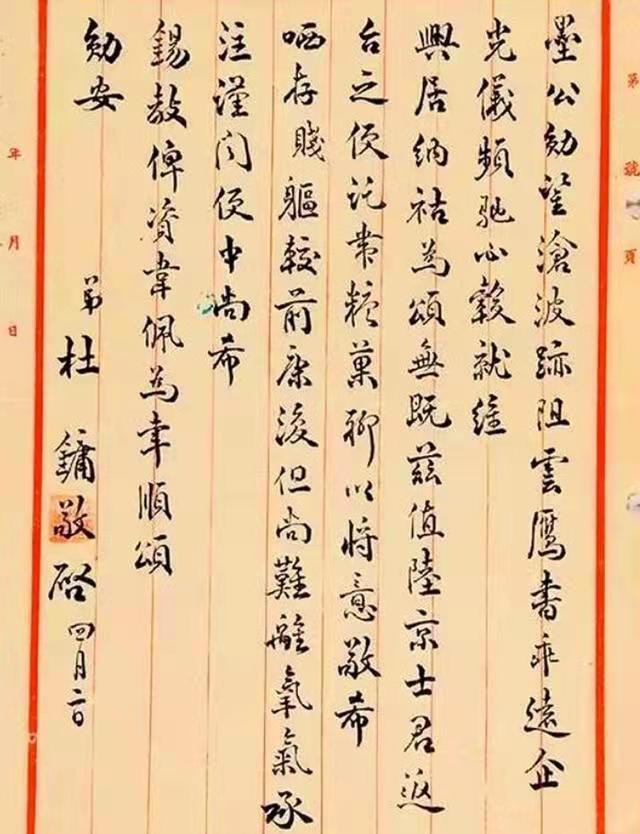 第 號 頁
墨公勛望滄波跡阻雲鴈書乖遠企
光儀頻馳心轂就維
興居納祜為頌無既茲值陸京士君返
台之便託帶糖菓聊以將意敬希
哂存賤軀較前康復但尚難離氧氣承
注謹聞便中尚希
錫教俾資韋佩為幸順頌
勛安
弟杜鏞敬啓四月二日
年 月 日